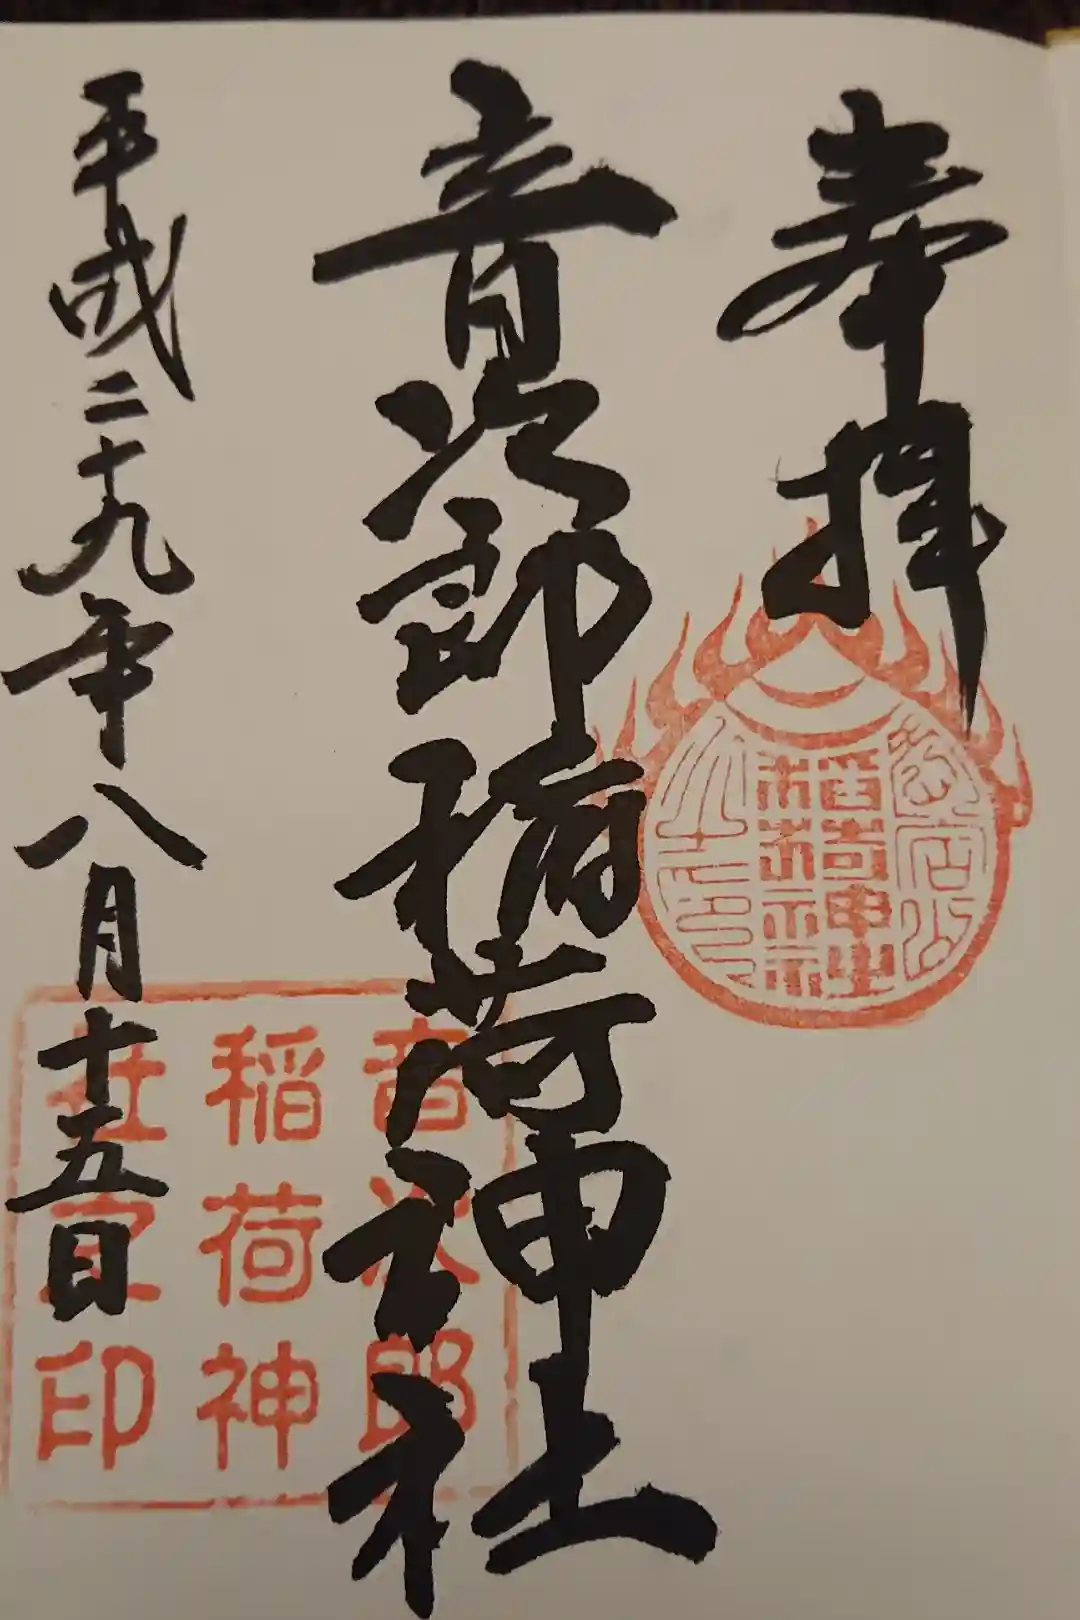 奉拝
音次郎稲荷神社
平成二十九年八月十五日
音次郎
稲荷神
社宜印
稲荷神社